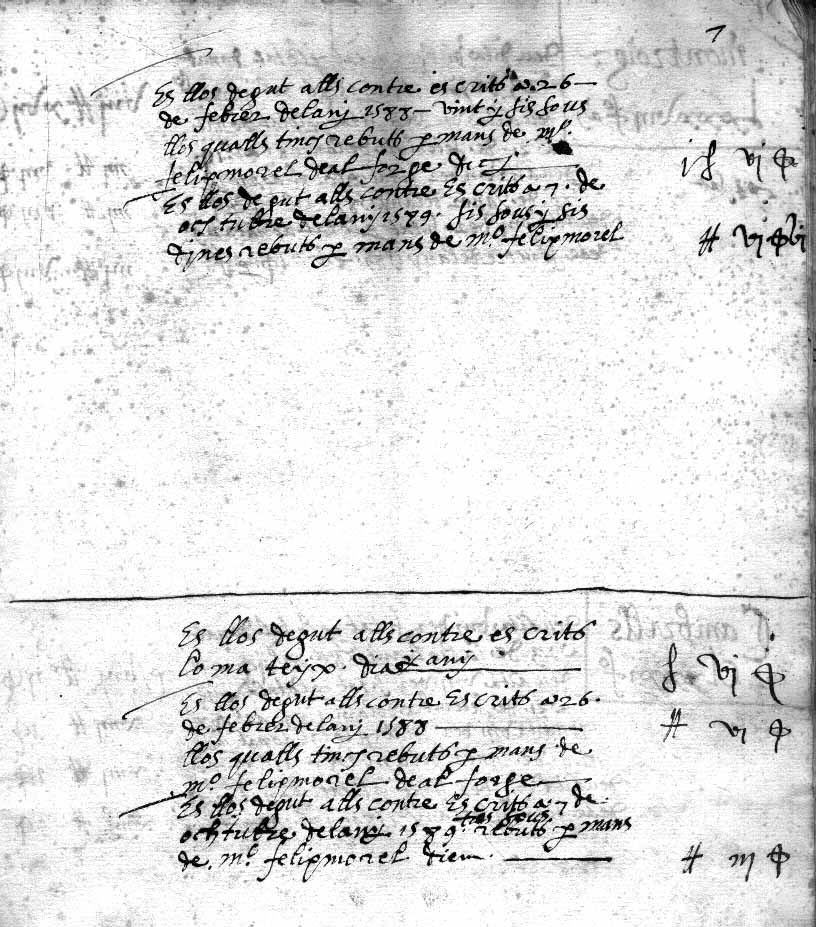 7
Es llos degut alls contre escrits a 26
de febrer delany 1588 vint y sis sous
llos qualls tinch rebuts p mans de mº
felip morel de al forge
Es llos degut alls contre Escrits a 7. de
octubre delany 1589. sis sous y sis
dines rebuts p mans de mº felip morel
Es llos degut alls contre escrits
lo mateyx dia y any
Es llos degut alls contre Escrits a 26.
de febrer delany 1588
llos qualls tinch rebuts p mans de
mº felip morel de al forge
Es llos degut alls contre Escrits a 7 de
ochtubre delany 1589. tres sous rebuts p mans
de mº felip morel diem